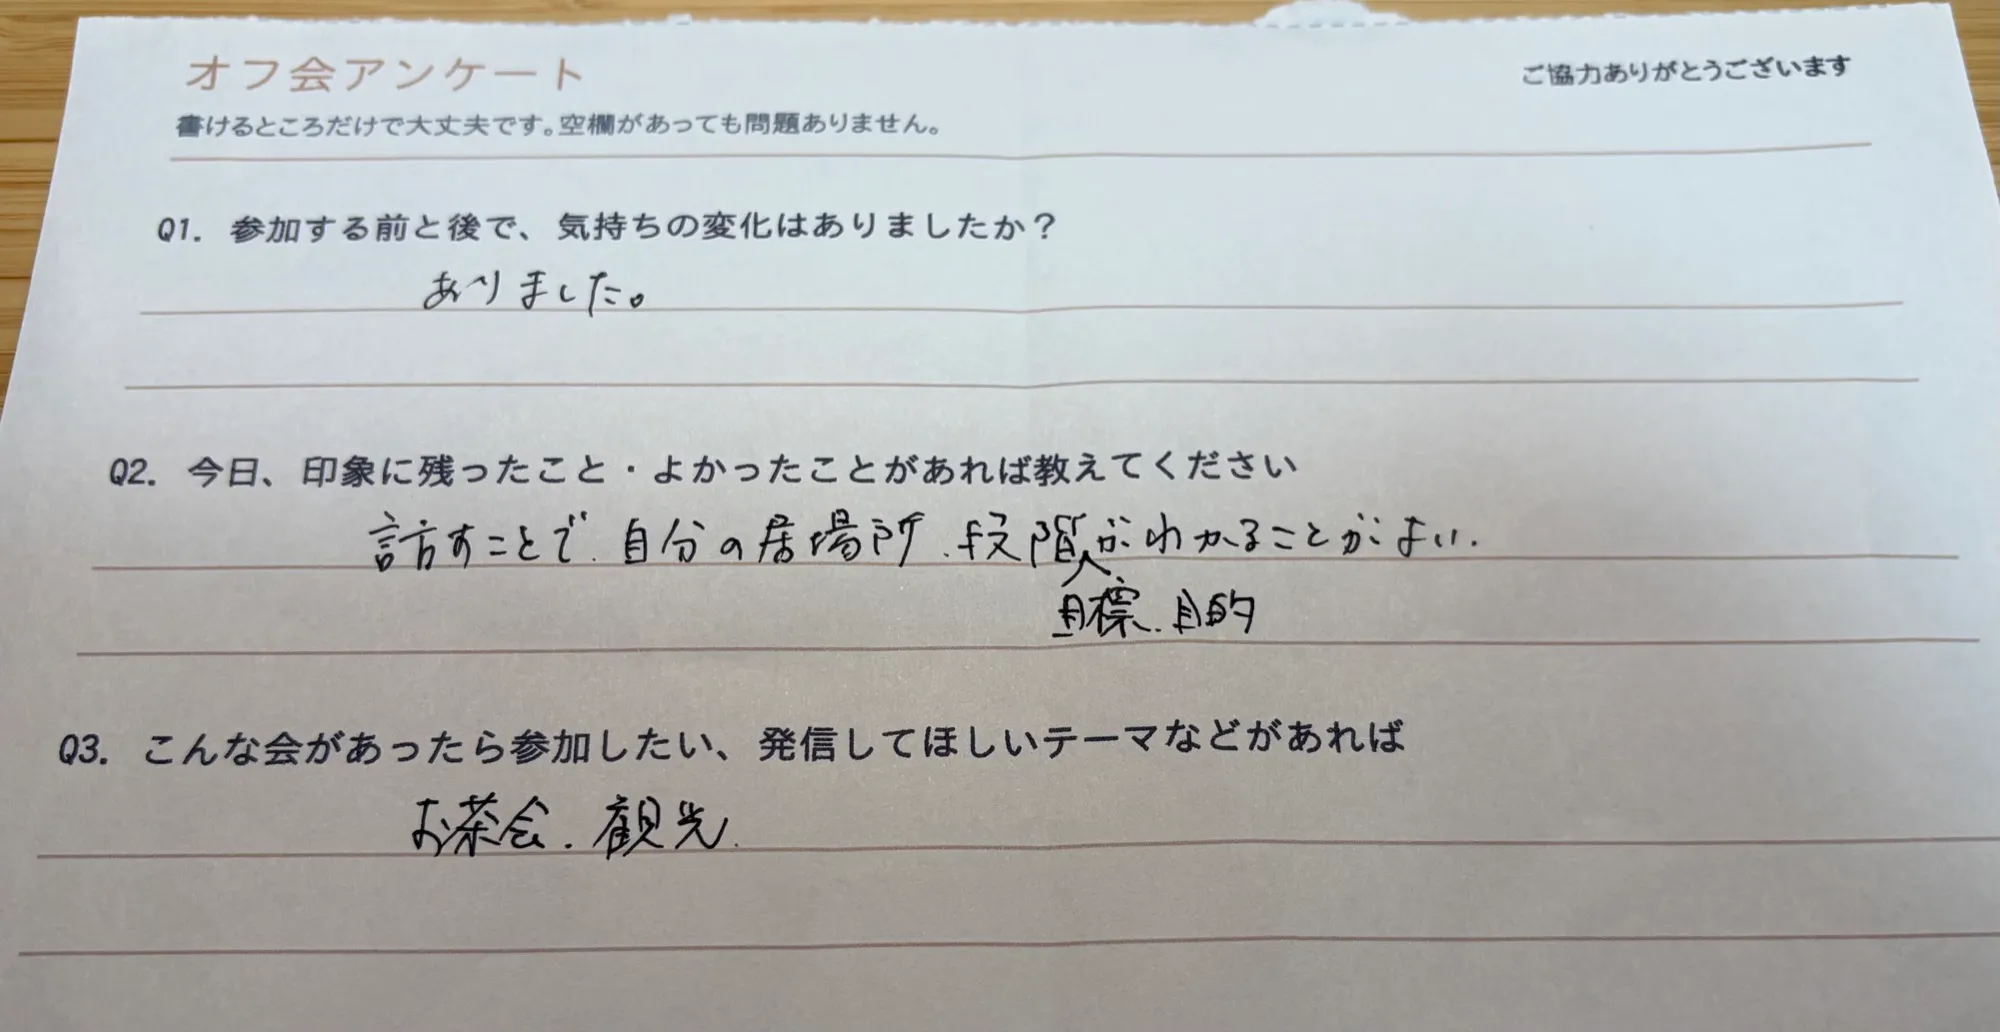 オフ会アンケート
ご協力ありがとうございます
書けるところだけで大丈夫です。空欄があっても問題ありません。
Q1. 参加する前と後で、気持ちの変化はありましたか？
ありました。
Q2. 今日、印象に残ったこと・よかったことがあれば教えてください
訪すことで、自分の居場所、段階がわかることがよい.
目標、目的
Q3. こんな会があったら参加したい、発信してほしいテーマなどがあれば
お茶会、観光.